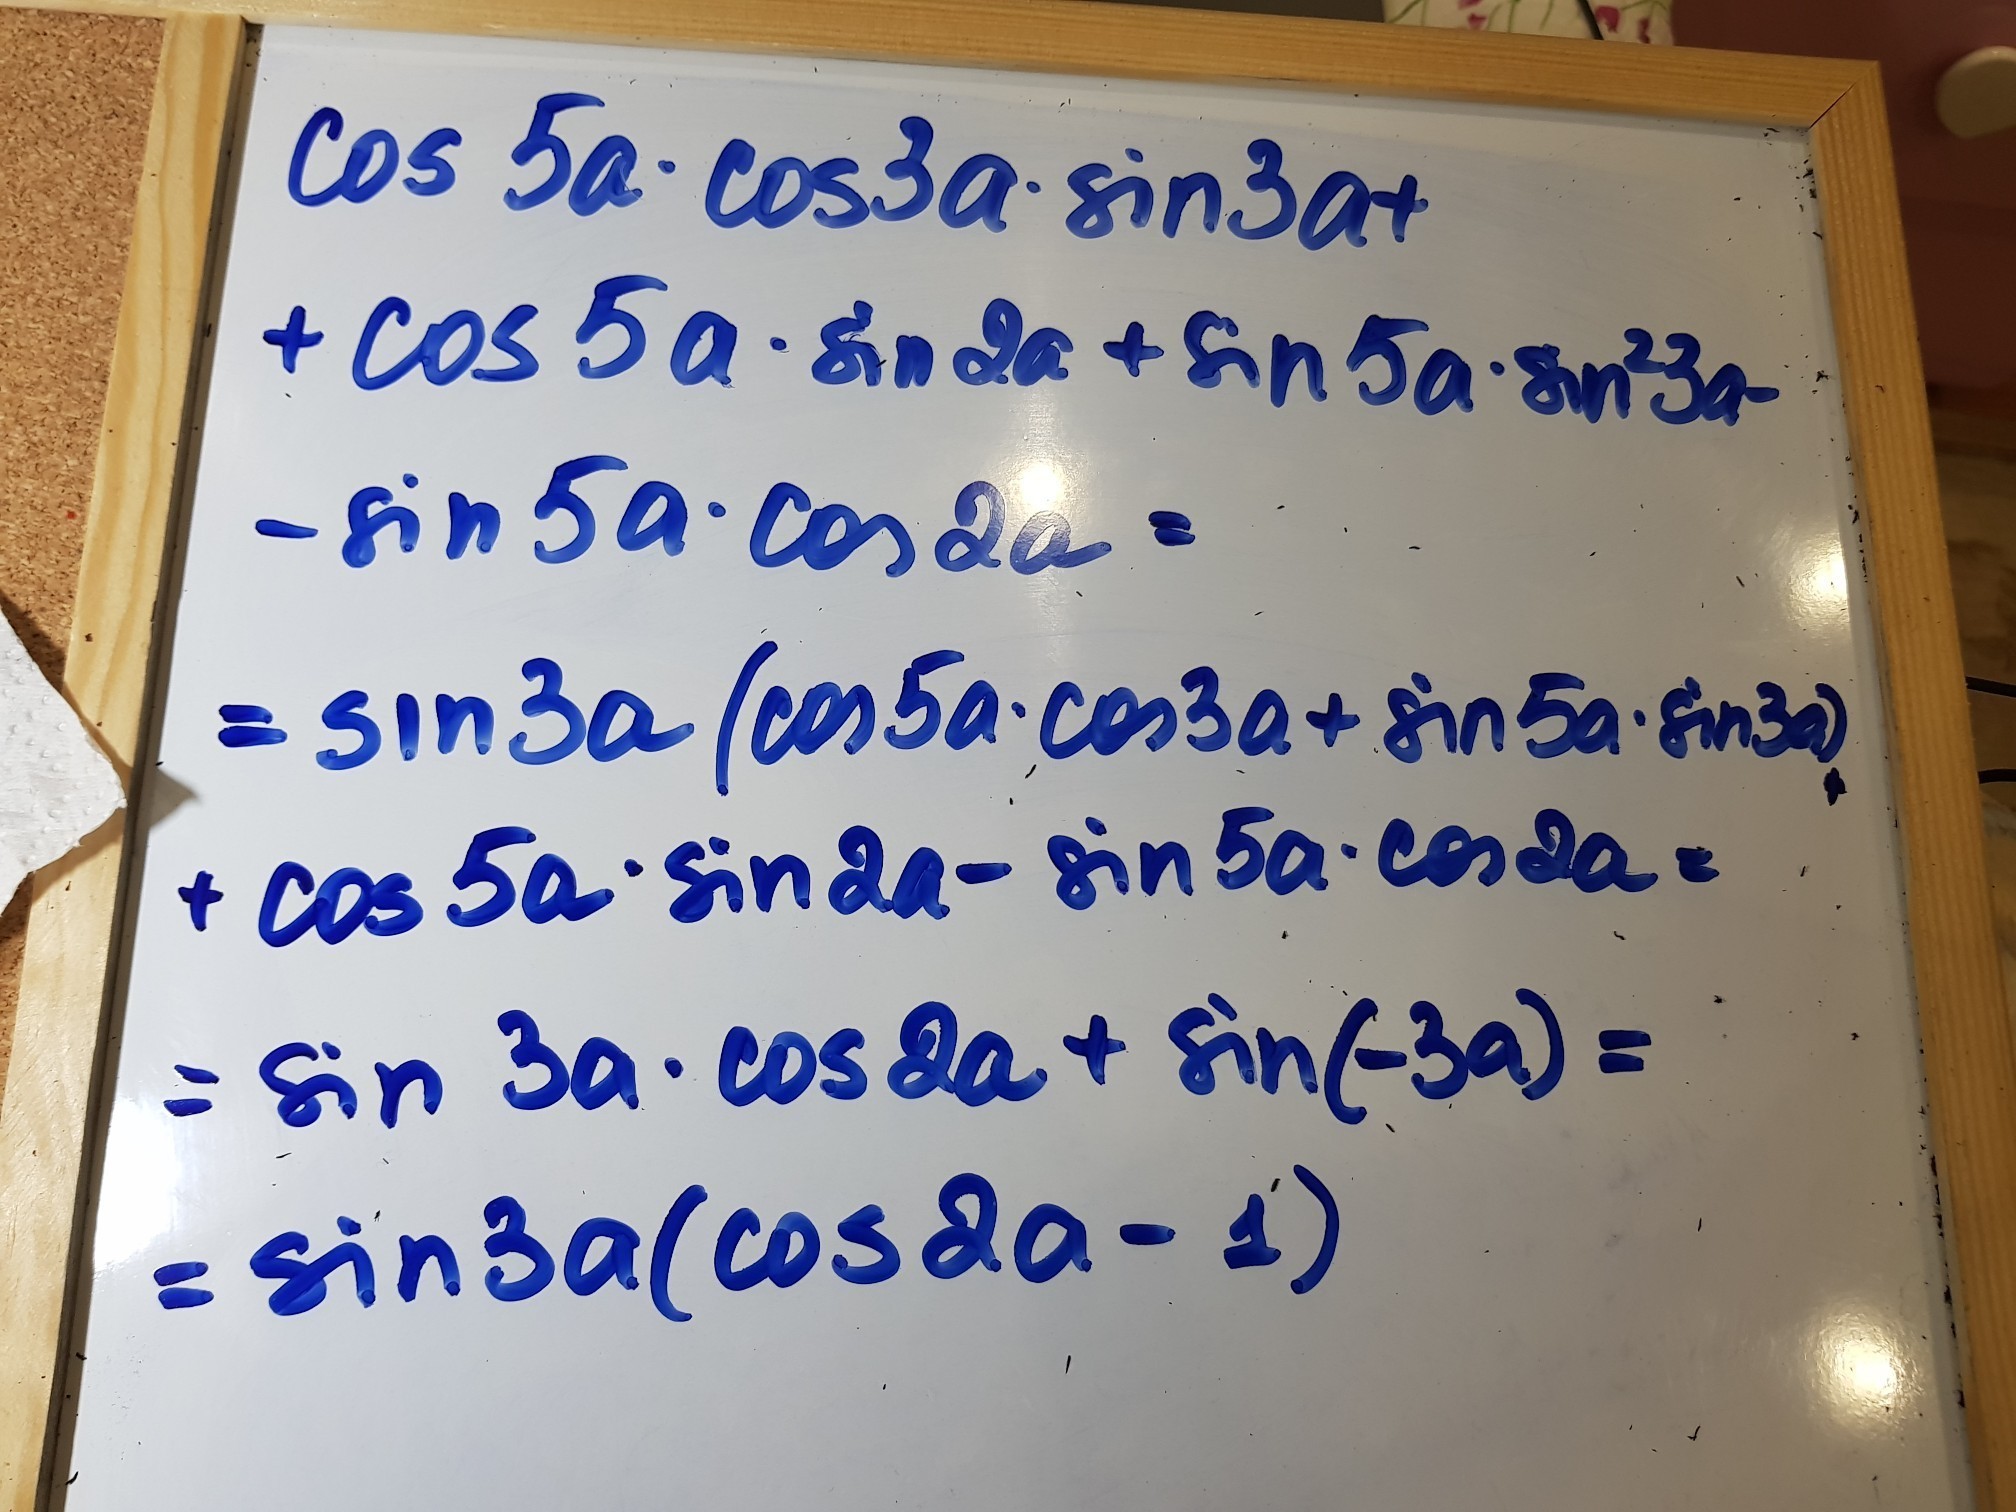 cos 5a · cos3a · sin3a+
+ cos 5a · sin 2a + sin 5a · sin²3a-
- sin 5a · cos 2a =
= sin3a (cos5a · cos3a + sin5a · sin3a)+
+ cos 5a · sin2a - sin5a · cos2a =
= sin 3a · cos2a + sin(-3a) =
= sin3a(cos2a - 1)